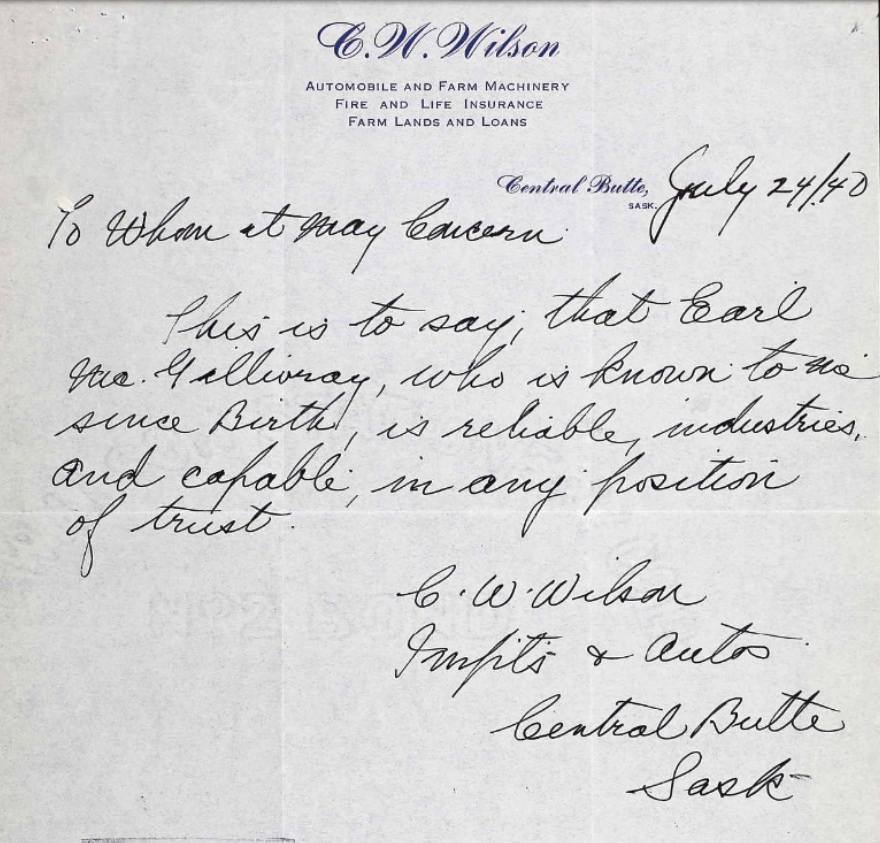 C. W. Wilson
AUTOMOBILE AND FARM MACHINERY
FIRE AND LIFE INSURANCE
FARM LANDS AND LOANS
Central Butte, SASK. July 24/40
To Whom it May Concern
This is to say, that Earl
Mc. Gillivray, who is known to me
since Birth, is reliable, industries,
and capable, in any position
of trust.
C. W. Wilson
Impts & Autos
Central Butte
Sask